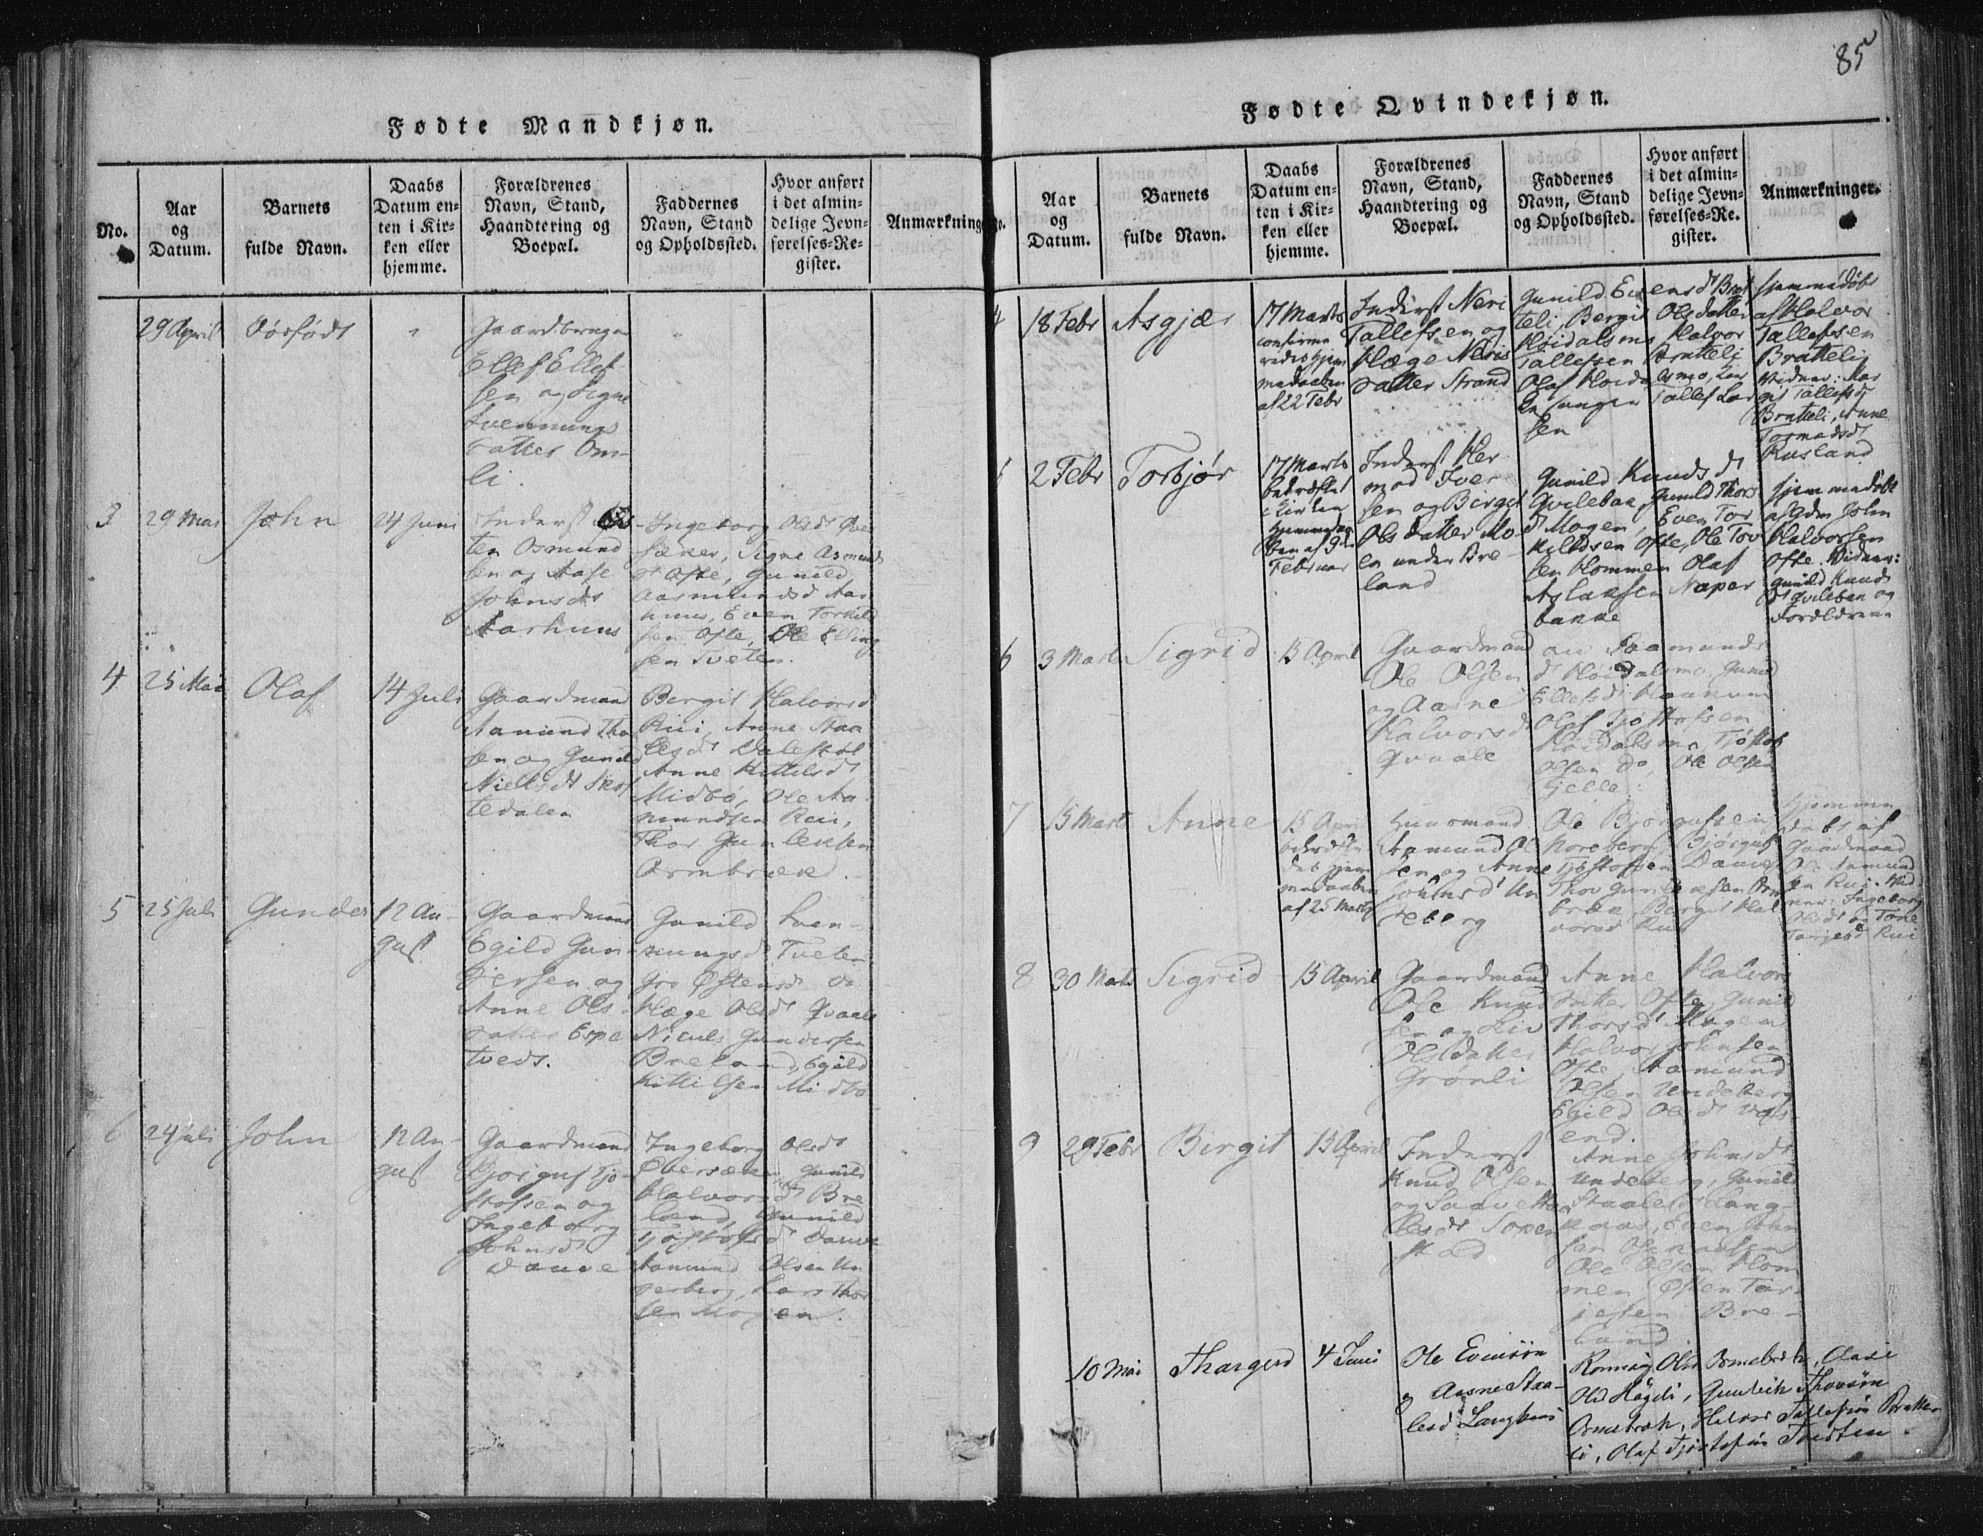 85
Fødte Mandkjøn.
No.
Aar
og
Datum.
Barnets
fulde Navn.
Daabs
Datum en-
ten i Kir-
ken eller
hjemme.
Forældrenes
Navn, Stand,
Haandtering og
Boepæl.
Faddernes
Navn, Stand
og Opholdssted.
Hvor anført
i det almin-
delige Jevn-
førelses-Re-
gister.
Anmærkninge
29 April
Dødfødt
Gaardbruger
Ellef Ellef
sen og Signe
Svennungs
datter Om-
li.
3
29 Mai
John
24 Juni
Inderst
ten Osmund
sen og Aase
Johnsdt
Aarhuus
Ingeborg Olsdt
Signe Asmunds
dt Ofte, Gunild
Aasmundsd Aar
huus, Even Torkild
sen Ofte, Ole Elling
sen Tveten.
4
25 Mai
Olaf
14 Juli
Gaardmand
Aamund Tho
sen og Gunild
Nielsdt Skof
tedalen
Bergit Halvorsd
Rui, Anne Staa
lesdt Daleføt
Anne Kittilsdt
Midbø, Ole Aa
mundsen Rui,
Thor Gunleksen
Ormbrek.
5
25 Juli
Gunder
12 Au-
gust
Gaardmand
Egild Gun-
dersen og
Anne Ols-
datter Espe
tveds.
Gunild Sven-
nungsd Tveten
Gro Østensdt Do
Hæge Olsdt Qvaale
Niculs Gundersen
Breland, Egild
Kittilsen Midbø
6
24 Juli
John
12 Au-
gust
Gaardmand
Bjørguf Tjo-
stofsen og
Ingeborg
Johnsdt
Dauve
Ingeborg Olsdt
Gunild
Halvorsdt Bre
land, Gunild
Tjøstofsdt Dauve
Aamund Olsen Un
derberg, Lars Thor
sen Mogen.
Fødte Qvindekjøn.
Aar
og
Datum.
Barnets
fulde Navn.
Daabs
Datum en-
ten i Kir-
ken eller
hjemme.
Forældrenes
Navn, Stand,
Haandtering og
Boepæl.
Faddernes
Navn, Stand
og Opholdssted.
Hvor anført
i det almin-
delige Jevn-
førelses-Re-
gister.
Anmærkninger.
4
18 Febr
Asgjær
17 Marts
confirme
redes hjem
medaaben
af 22 Febr
Inderst Neri
Tallefsen og
Hæge Neris
datter Strand
Gunild Evensdt Brat
teli, Bergit Olsdatter
Høidalsmo, Halvor
Tallefsen Bratteli
Olaf Høidalsmo,
Tallef Lar
sen
hjemmedøbt
af Halvor
Tallefsen
Bratteli
Vidner: Mar
git Tallefsdt
Bratteli, Anne
Tormodsdt
Rusland
2 Febr
Torbjør
17 Marts
bekræftet
i Kirken
Hjemmeda
ben af 9de
Februar
Inderst Her
mod Iver
sen og Birgit
Olsdatter Mo
en under Bre
land
Gunild Knudsdt
Qvileban, Gunild Thors
dt Mogen, Even Tor
kildsen Ofte, Ole Tov
sen Hommen Olaf
Aslaksen Naper
banke
hjemmedøbt
af Gdm John
Halvorsen
Ofte. Vidner:
Gunild Knuds
dt Qvileban og
Forældrene
6
3 Marts
Sigrid
15 April
Gaardmand
Ole Olsen
og Aasne
Halvorsdt
Qvaale
Aamunds
dt Høidalsmo, Gunild
Ellefsdt Haukum
Olaf Tjøstofsen
Høidalsmo, Tjøstof
Olsen Do, Ole Olsen
Fjelle.
7
15 Marts
Anne
15 April
bekræfte
det hjem
medaaben
af 25 Marts
Huusmand
Aamund Ol
sen og Anne
Johnsdt Un
deberg
Ole Bjørgufsen
Noreberg, Bjørguf
Tjøstofsen Dauve
Thor Gunleksen Orm
brek, Bergit Hal
vorsd Rui
hjemme
døbt af
Gaardmand
Ole Aamund
sen Rui. Vid
ner: Ingeborg
Olsdt og Tone
Tarjesd Rui
8
30 Marts
Sigrid
15 April
Gaardmand
Ole Knud
sen og Liv
Olsdatter
Grønli
Anne Halvors
datter Ofte, Gunild
Thorsdt Mogen
Halvor Johnsen
Ofte, Aamund
Olsen Undeberg
Egild Olsdt Vaps-
end.
9
29 Febr
Birgit
15 April
Inderst
Knud Olsen
og Saave Staa
lesdt Sopen
stad
Anne Johnsdt
Undeberg, Gunild
Staalesdt Lang-
kaas, Even John
sen
Ole Olsen Hom
men, Østen Tar-
jesen Bre-
land
10 Mai
Thargerd
4 Juni
Ole Evensøn
& Aasne Staa-
lesd Langkaas
Ronnoug Olsd Ormebrek, Aase
Olsd Høgli, Gunleik Thorsøn
Ormebrek, Halvor Tallefsøn Bratte-
li, Olaf Tjøstofsøn Tvedten.